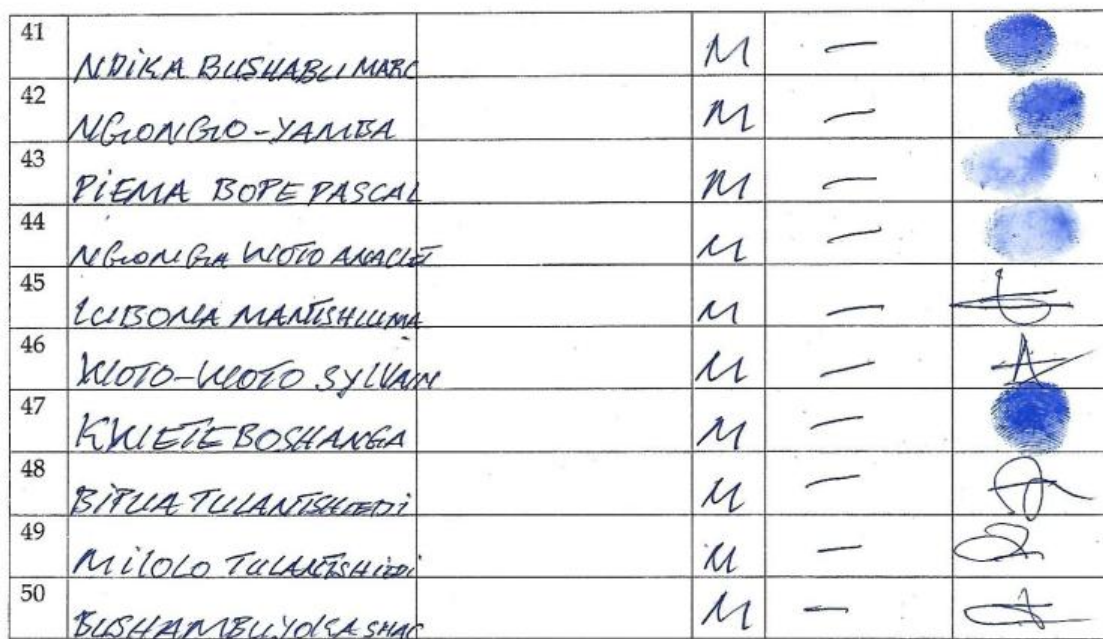 41 NDIKA BUSHABU MARC M —
42 NGONGO-YAMBA M —
43 PIEMA BOPE PASCAL M —
44 NGONGA WOTO ANACLET M —
45 LUBONA MANTSHUMA M —
46 WOTO-WOTO SYLVAIN M —
47 KWETE BOSHANGA M —
48 TULANTSHIEDI M —
49 MILOLO TULANTSHIEDI M —
50 M —